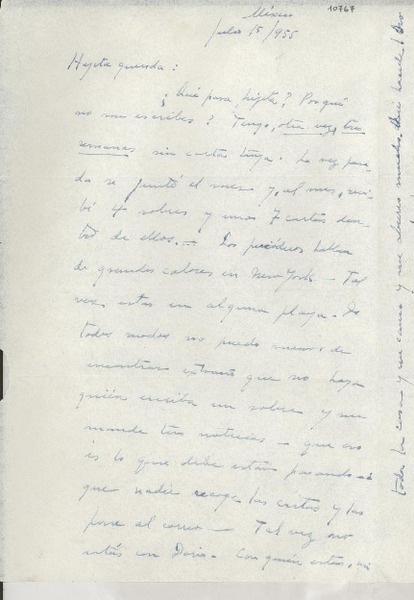 10767
México
julio 15/955
Hijita querida:
¿Qué pasa, hijita? ¿Por qué
no me escribes? Tengo, otra vez, tres
semanas sin cartas tuyas. La vez pasa-
da se juntó el mes y, al mes, reci-
bí 4 sobres y unas 7 cartas den-
tro de ellos. — Los periódicos hablan
de grandes calores en New York — Tal
vez estás en alguna playa. De
todos modos no puedo menos de
encontrar extraño que no haya
quién escriba un sobre y me
mande tus noticias — que eso
es lo que debe estar pasando —
que nadie recoge las cartas y las
pone al correo — Tal vez no
estás con Doris — Con quién estás, mi
todo la casa y me canso y me aburro mucho. Qué hacer!